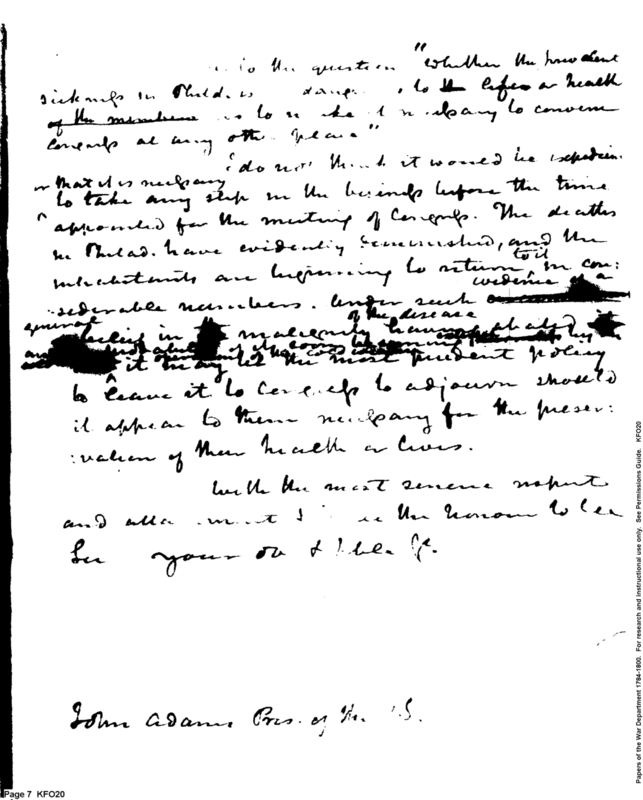 to the question "Whether the prevalent
sickness in Philad. is dangerous to the lifes or health
of the members as to make it necessary to convene
Congress at any other place"
I do not think it would be expedient
or that it is necessary
to take any step in the business before the time
appointed for the meeting of Congress. The deaths
in Philad. have evidently diminished, and the
inhabitants are beginning to return to it in con:
siderable numbers. Under such evidence of a
general belief in malignity of the disease having abated
it may be the most prudent policy
to leave it to Congress to adjourn should
it appear to them necessary for the preser:
:vation of their health or lives.
With the most sincere respect
and attachment I the honour to be
Sir your ob
John Adams Pres. of the U.S.
Page 7 KFO20
Papers of the War Department 1784-1800. For research and instructional use only. See Permissions Guide. KFO20